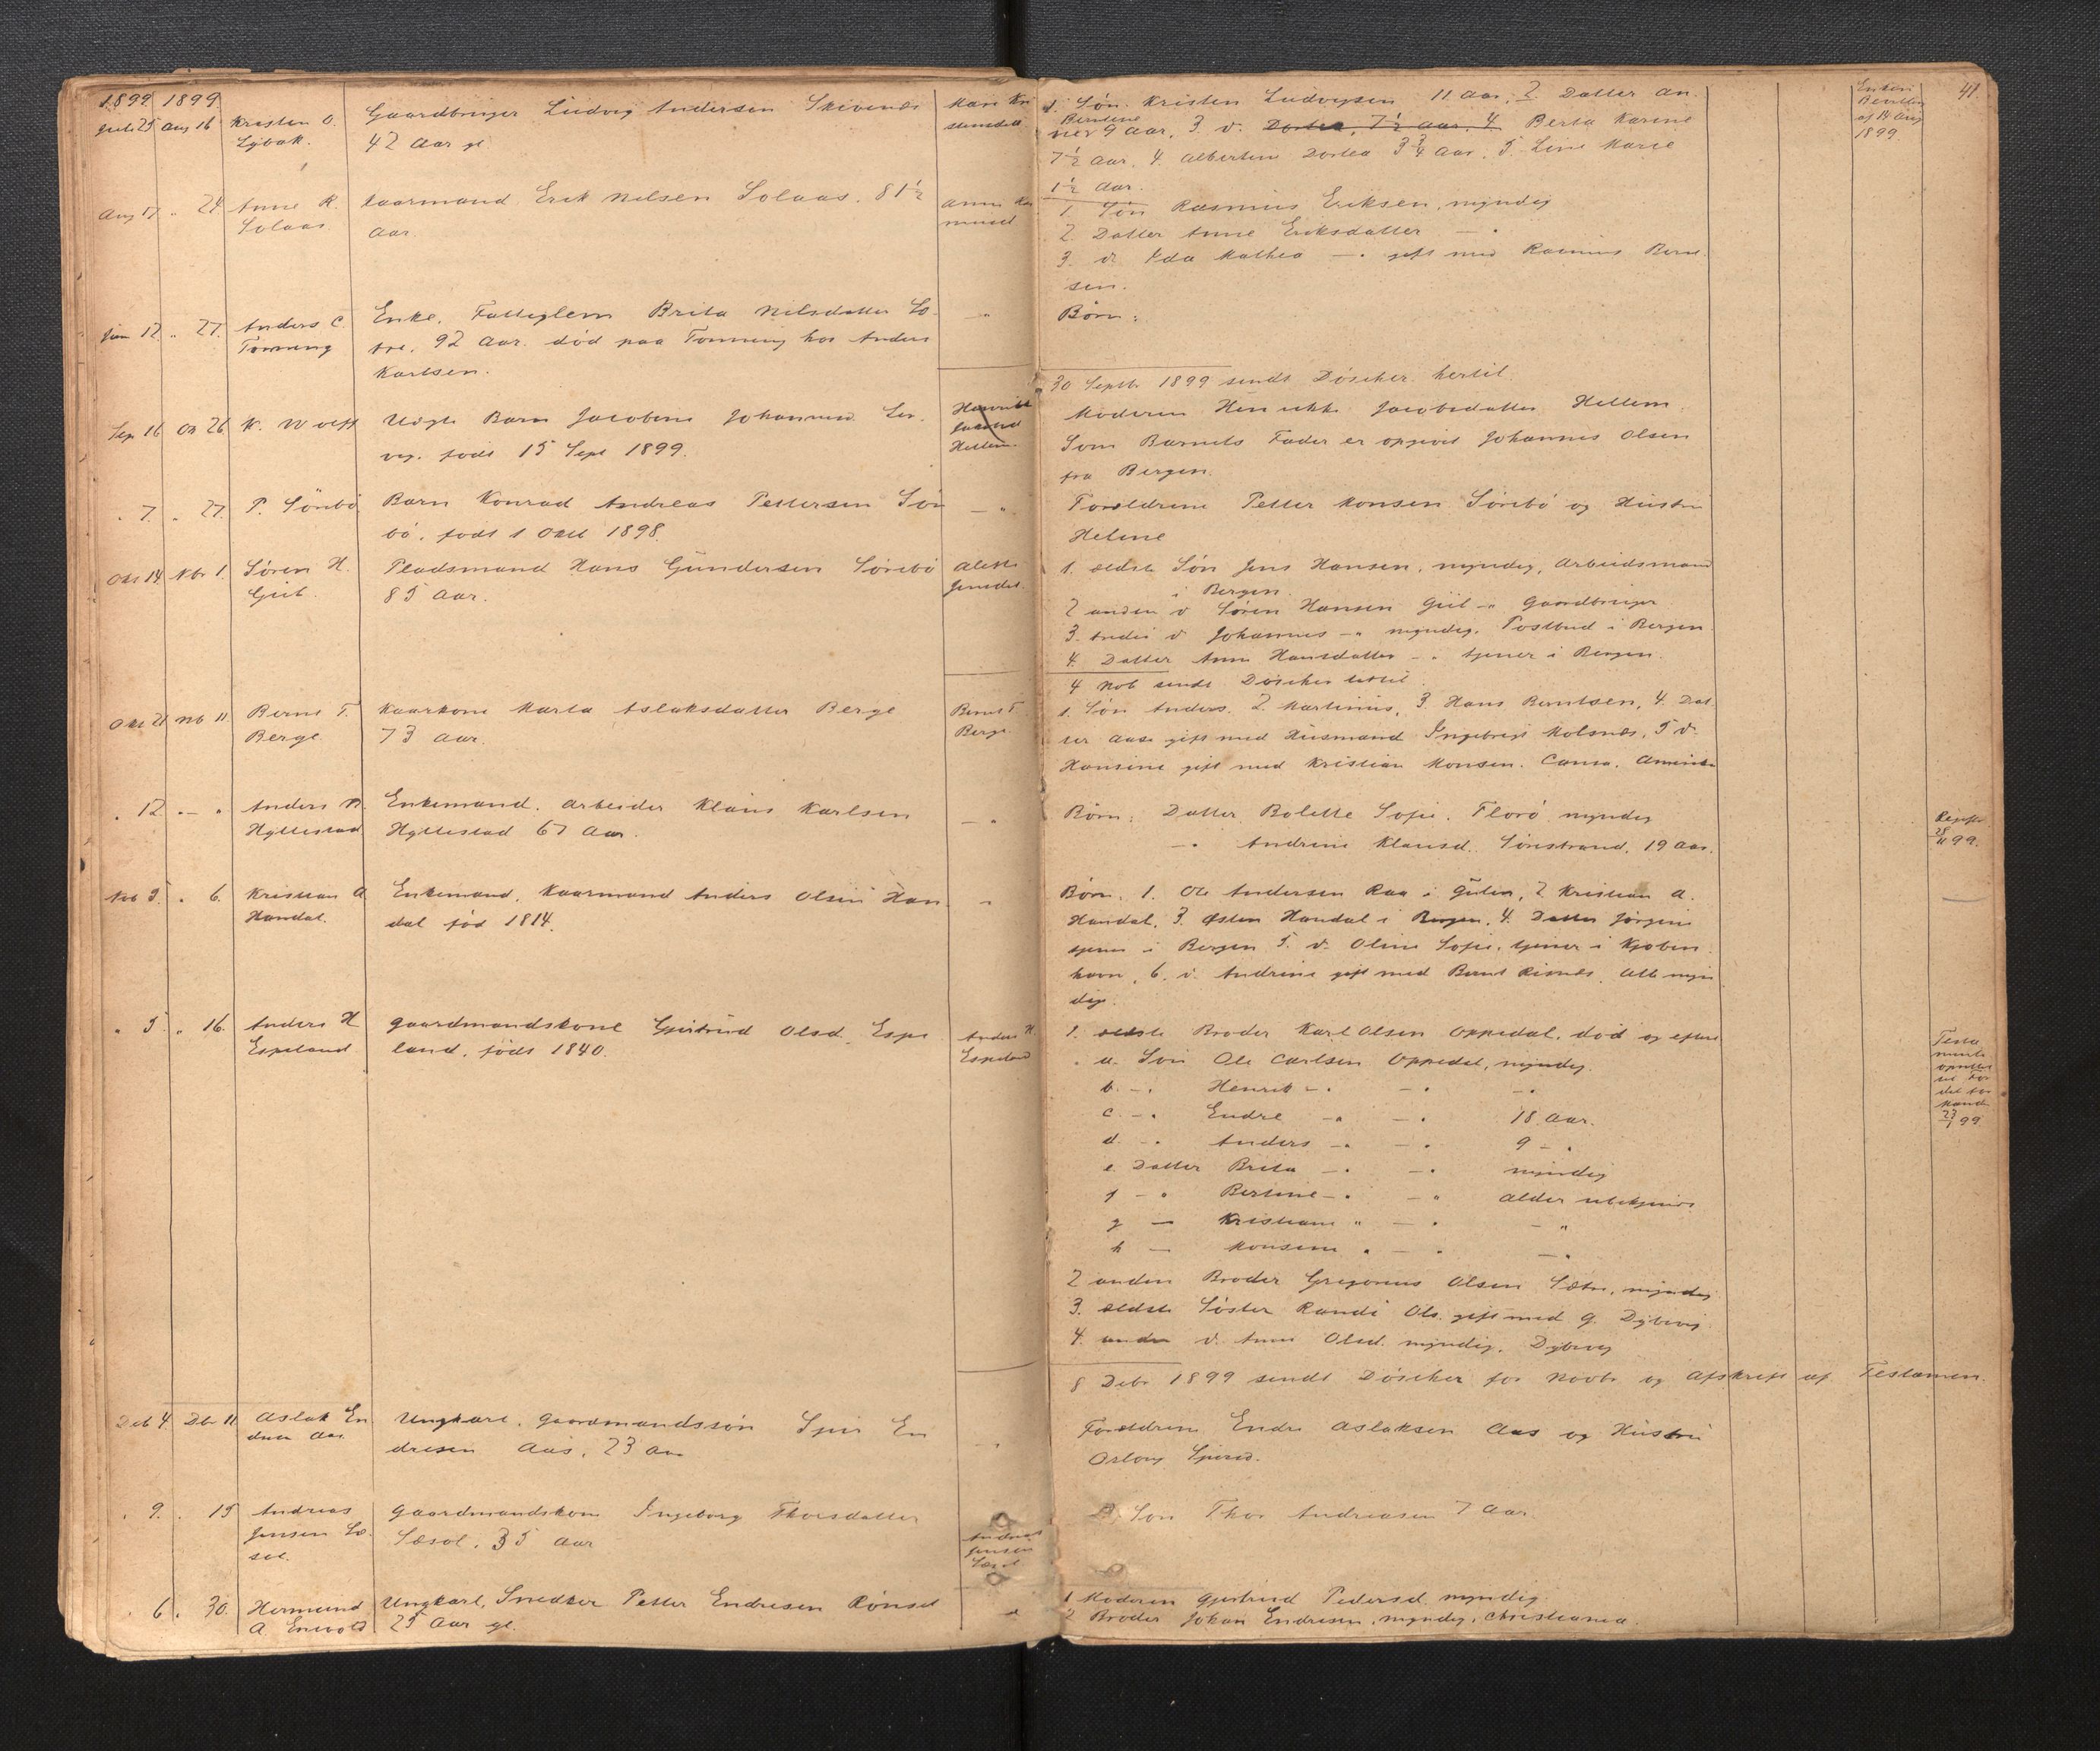 1899 1899
Juli 25 Aug 16 Kristen O. Gaardbruger Ludvig Andersen Skivenes
Lybæk. 42 Aar gl.
1. Søn Kristen Ludvigsen 11 Aar, 2. Datter An-
Berntine
ner 9 Aar, 3. d. Dortea, 7½ Aar. 4. Berta Karine
7½ Aar. 4. Albertine Dortea 3¾ Aar. 5. Line Marie
1½ Aar.
Enken
af 14 Aug
1899.
41.
Aug 17 " 24 Anne R. Kaarmand Erik Nilsen Solaas. 81½
Solaas Aar.
1. Søn Rasmus Eriksen, myndig
2. Datter Anne Eriksdatter — "
3. d. Ida Mathea — " gift med Rasmus Bernt-
sen.
Jun 12 " 27. Anders C. Enke, Fattiglem Brita Nilsdatter So-
Tønning tre. 92 Aar. død paa Tønning hos Anders
Karlsen.
— "
Børn:
30 Septbr 1899 sendt Døsiher hertil
Sep 16 Ok 26 K. Wolff Uægte Barn Jacobine Johannesd. Ler-
vog. født 15 Sept 1899.
Henrikke
Jacobsd
Hellem
Moderen Henrikke Jacobsdatter Hellem
Som Barnets Fader er opgivet Johannes Olsen
fra Bergen.
" 7. " 27. P. Sörebö Barn Konrad Andreas Pettersen Sör-
bö. født 1 Okt 1898.
— "
Forældrene Petter Monsen Sörebö og Hustru
Helene
Okt 14 Nbr 1. Søren H. Pladsmand Hans Gundersen Sörebö
Giil. 85 Aar.
Alette
Jensdat.
1. ældste Søn Jens Hansen, myndig, Arbeidsmand
i Bergen.
2 anden d. Søren Hansen Giil — " Gaardbruger
3. tredie d. Johannes — " myndig. Postbud i Bergen
4. Datter Anne Hansdatter — " tjener i Bergen.
4 Nob sendt Døsiher hertil
Okt 21 Nb 11 Bernt T. Kaarkone Marta Aslaksdatter Berge
Berge. 73 Aar.
Bernt T.
Berge
1. Søn Anders. 2. Martinus, 3. Hans Berntsen, 4. Dat-
ter Aase gift med Husmand Ingebrigt Molsnes, 5 d.
Hansine gift med Kristian Monsen. Amerika
" 12 — " Anders N. Enkemand. Arbeider Klaus Karlsen
Hyllestad Hyllestad 67 Aar.
— "
Børn: Datter Bolette Sofie. Florö myndig
— " Andrine Klausd. Sörestrand, 19 Aar.
28
11 99.
Nob 3. " 6. Kristian A. Enkemand, Kaarmand Anders Olsen Han-
Handal. dal fød 1814.
"
Børn. 1. Ole Andersen Raa i Gulen, 2 Kristian A.
Handal, 3. Østen Handal i Bergen, 4. Datter Jørgine
tjener i Bergen 5. d. Oline Sofie, tjener i Kjøben-
havn, 6. d. Andrine gift med Bernt Risnes. Alle myn-
dige.
" 5. " 16. Anders H Gaardmandskone Gjertrud Olsd. Espe-
Espeland land, født 1840.
Anders H.
Espeland
1. ældste Broder Karl Olsen Oppedal, død og efterl
a. Søn Ole Carlsen Oppedal, myndig.
b. — " Henrik — " — " — "
c. — " Endre — " — " 18 Aar.
d. — " Anders — " — " 9 — "
e. Datter Brita — " — " myndig
f — " Bertine — " — " Alder ubekjendt
g — Kristiane " — " — "
h — Monsine " — " — "
2 anden Broder Gregorius Olsen Sætre, myndig
3. ældste Søster Randi Ols. gift med G. Dybevig
4. anden d. Anne Olsd. myndig. Dybevig
Testa-
ment
99
8 Debr 1899 sendt Døsiher for Novbr og Afskrift af Testamen.
Deb 4. Dbr 11 Aslak En- Ungkarl. Gaardmandssøn Sjur En-
dresen Aas. dresen Aas, 23 Aar
— "
Forældrene Endre Aslaksen Aas og Hustru
Sjursd.
" 9. " 15 Andreas Gaardmandskone Ingeborg Thorsdatter
Jensen Sæ- Sæsol. 35 Aar
sol.
Andreas
Jensen
Sæsol
Søn Thor Andreasen 7 Aar.
" 6 " 30. Hermund Ungkarl, Snedker Petter Endresen Rönset
A. Enevold 25 Aar gl.
"
1 Moderen Gjertrud Pedersd. myndig
2 Broder Johan Endresen, myndig, Christiania.